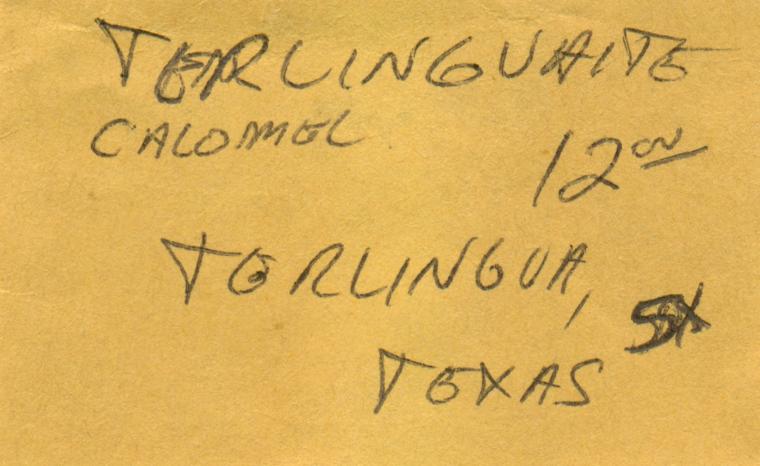 TERLINGUAITE
CALOMEL
12 00
TERLINGUA,
TEXAS